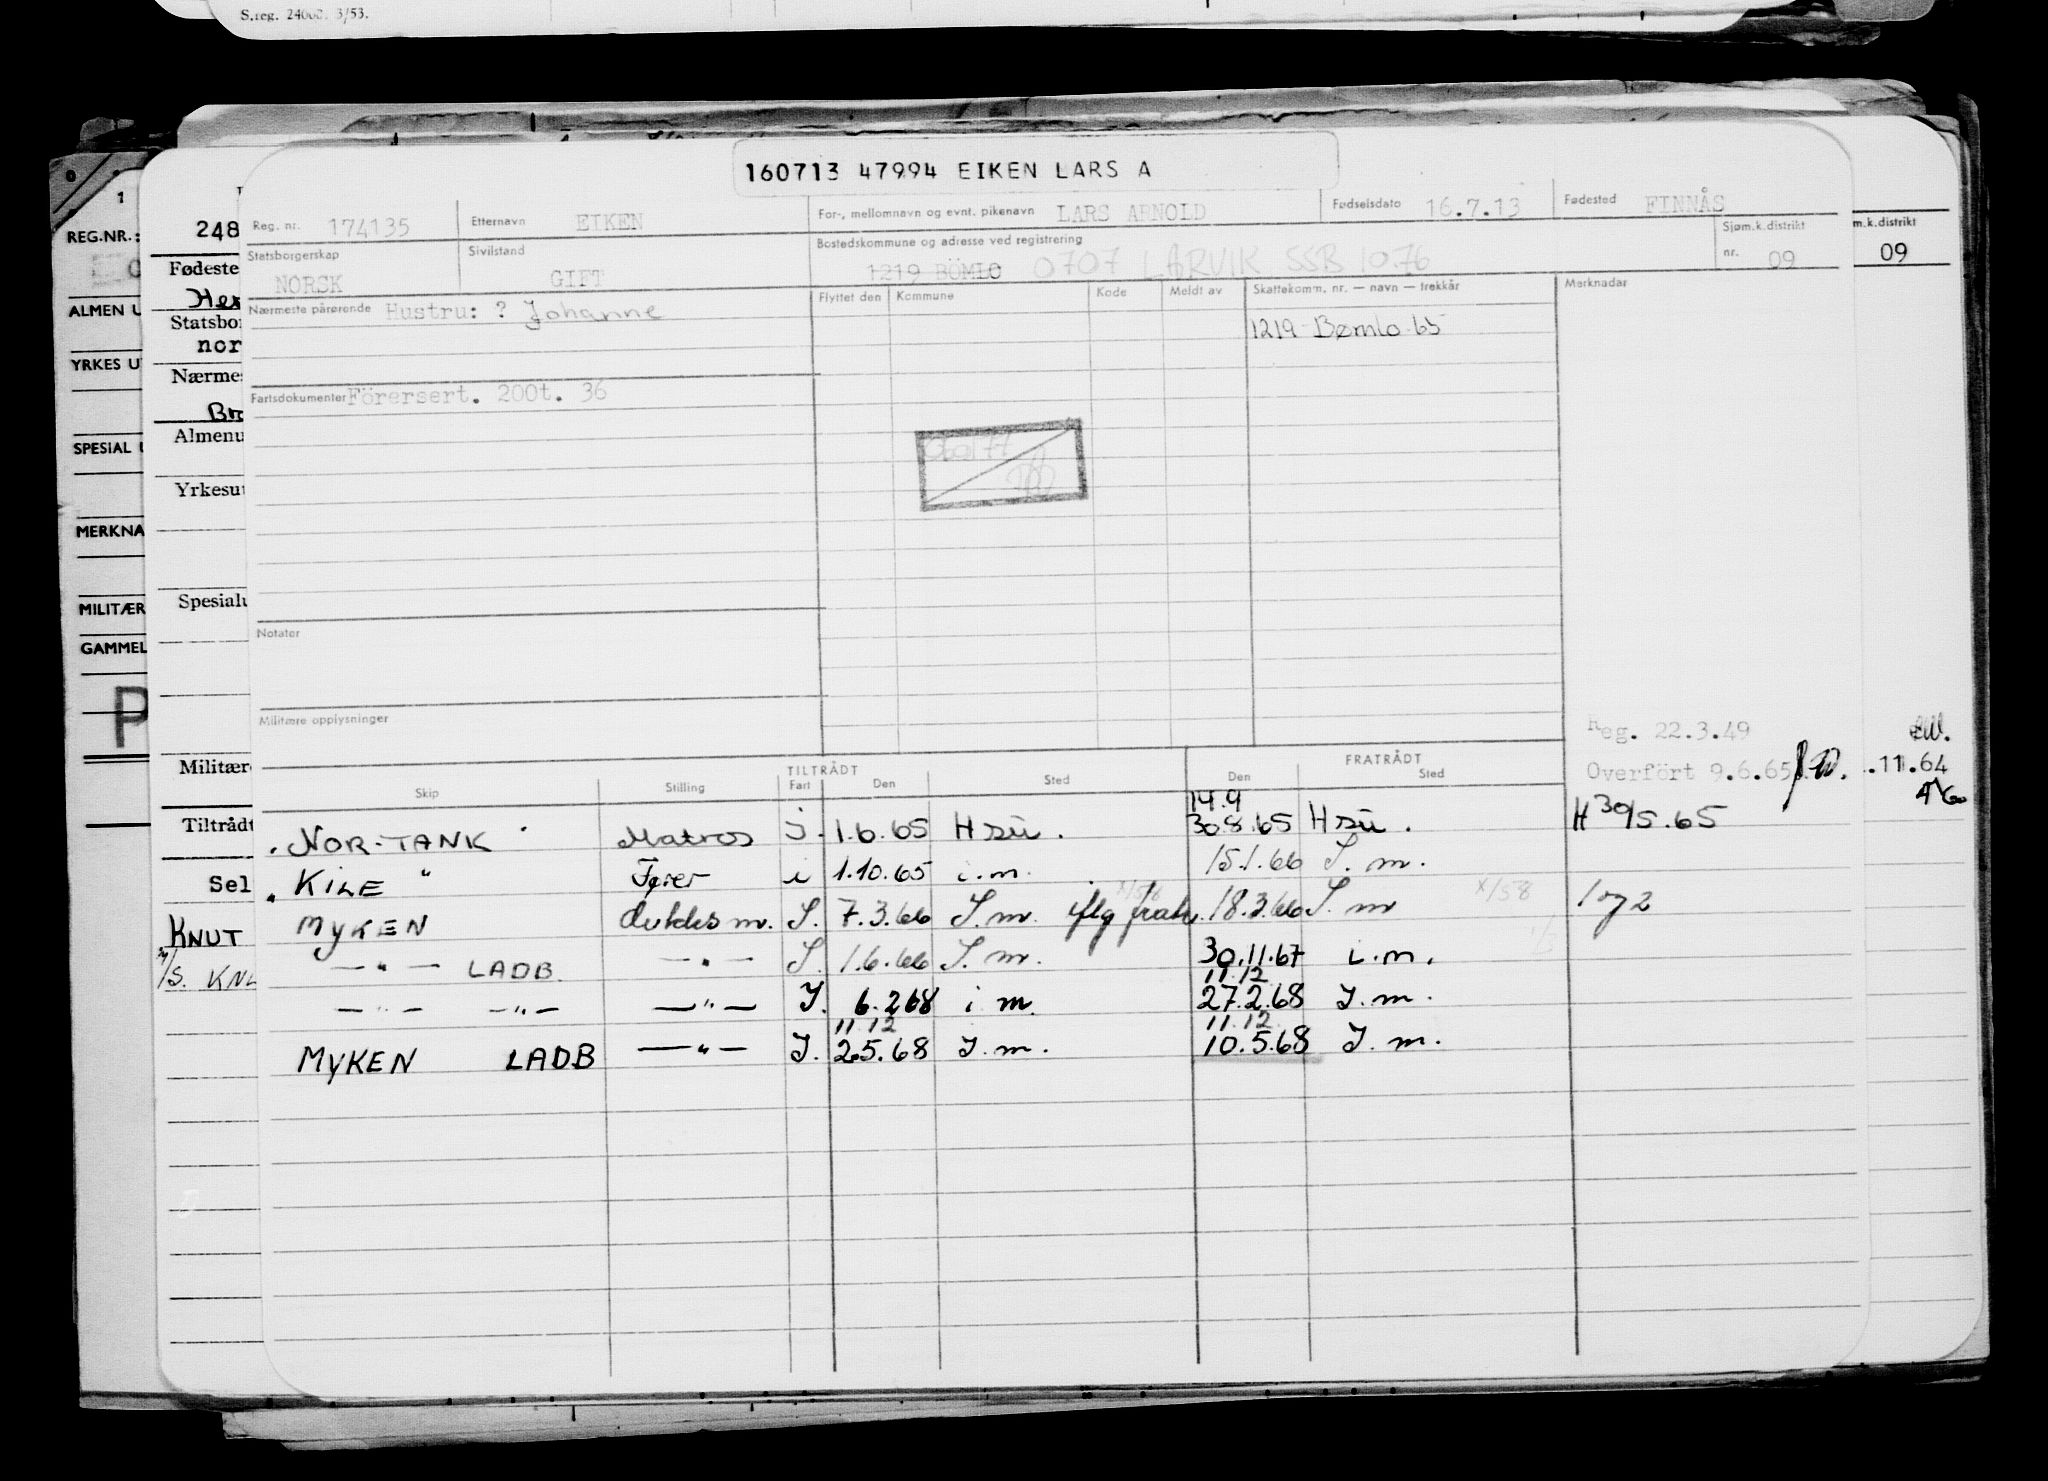 S.reg. 24000. 3/53.
160713 47994 EIKEN LARS A
Reg. nr. 174135 Etternavn EIKEN For-, mellomnavn og evnt. pikenavn LARS ARNOLD Fødselsdato 16.7.13 Fødested FINNÅS
Statsborgerskap NORSK Sivilstand GIFT Bostedskommune og adresse ved registrering 1219 BÖMLO 0707 LARVIK SSB 10.76 Sjøm.k.distrikt nr. 09
m.k.distrikt 09
Nærmeste pårørende Hustru: ? Johanne Flyttet den Kommune Kode Meldt av Skattekomm. nr. — navn — trekkår Merknader
1219 Bømlo 65
Fartsdokumenter Förersert. 200t. 36
Notater
Militære opplysninger
Reg. 22.3.49
Overfört 9.6.65
.11.64
TILTRÅDT FRATRÅDT
Skip Stilling Fart Den Sted Den Sted
14.9
. NOR-TANK Matros i. 1.6.65 Hsu. 30.8.65 Hsu. H 30/5.65
. KILE " Fører i 1.10.65 i.m. 15.1.66 I.m.
x/58
MYKEN I. 7.3.66 I.m. iflg fratr. 18.3.66 I.m x/58 1 og 2
—"— LADB. —"— I. 1.6.66 I.m. 30.11.67 i.m.
11.12
—"— —"— —"— I. 6.2.68 i m. 27.2.68 I.m.
11.12 11.12
MYKEN LADB —"— I. 2.5.68 I.m. 10.5.68 I.m.
REG.NR.:
ALMEN U
YRKES U
SPESIAL
MERKNA
MILITÆR
GAMMEL
P
248
Fødeste
Her
Statsbor
nor
Nærmes
Br
Almenu
Yrkesut
Spesialu
Militær
Tiltrådt
Sel
KNUT
/S. KNL